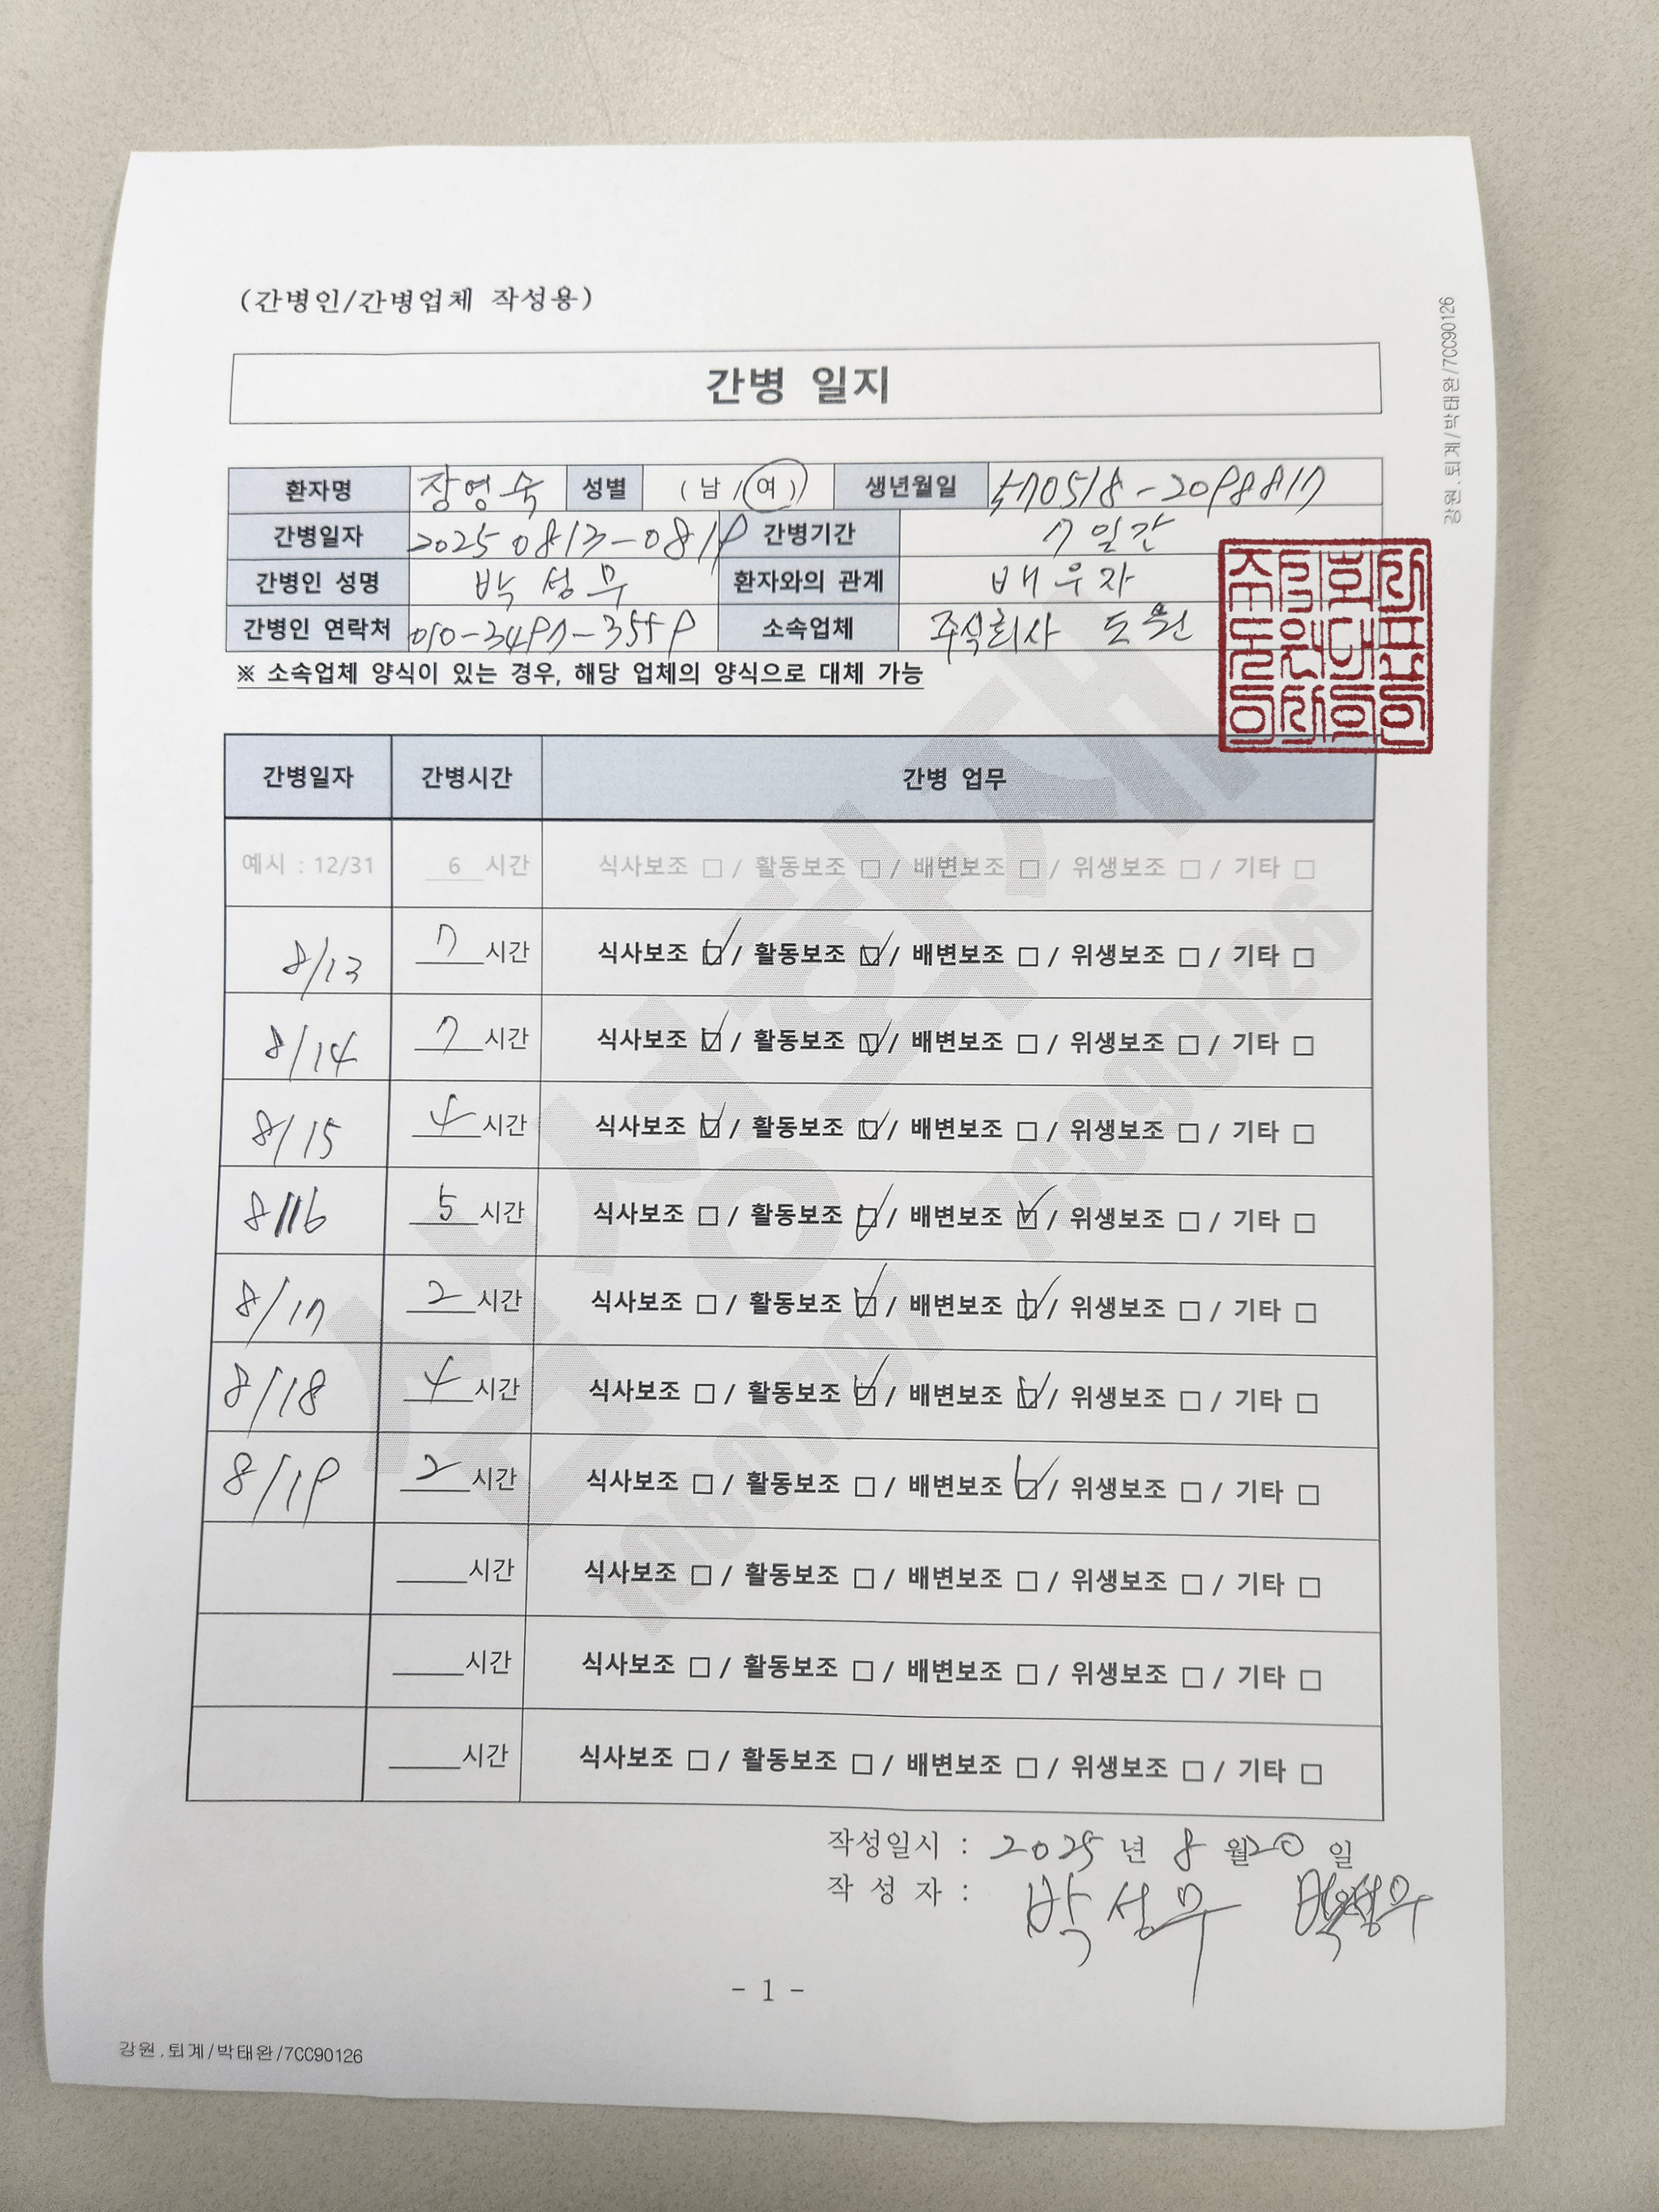 (간병인/간병업체 작성용)
강원.퇴계/박태완/7CC90126
간병 일지
환자명 장영숙 성별 (남/여) 생년월일 570518-2098817
간병일자 2025 0813-0819 간병기간 7일간
간병인 성명 박성무 환자와의 관계 배우자
간병인 연락처 010-3497-3559 소속업체 주식회사 도원
※ 소속업체 양식이 있는 경우, 해당 업체의 양식으로 대체 가능
간병일자 간병시간 간병 업무
예시 : 12/31 6 시간 식사보조 □ / 활동보조 □ / 배변보조 □ / 위생보조 □ / 기타 □
8/13 7 시간 식사보조 ☑ / 활동보조 ☑ / 배변보조 □ / 위생보조 □ / 기타 □
8/14 7 시간 식사보조 ☑ / 활동보조 ☑ / 배변보조 □ / 위생보조 □ / 기타 □
8/15 4 시간 식사보조 ☑ / 활동보조 ☑ / 배변보조 □ / 위생보조 □ / 기타 □
8/16 5 시간 식사보조 □ / 활동보조 ☑ / 배변보조 ☑ / 위생보조 □ / 기타 □
8/17 2 시간 식사보조 □ / 활동보조 ☑ / 배변보조 ☑ / 위생보조 □ / 기타 □
8/18 4 시간 식사보조 □ / 활동보조 ☑ / 배변보조 ☑ / 위생보조 □ / 기타 □
8/19 2 시간 식사보조 □ / 활동보조 □ / 배변보조 ☑ / 위생보조 □ / 기타 □
시간 식사보조 □ / 활동보조 □ / 배변보조 □ / 위생보조 □ / 기타 □
시간 식사보조 □ / 활동보조 □ / 배변보조 □ / 위생보조 □ / 기타 □
시간 식사보조 □ / 활동보조 □ / 배변보조 □ / 위생보조 □ / 기타 □
삼성화재
작성일시 : 2025 년 8 월 20 일
작 성 자 : 박성무 박성무
- 1 -
강원.퇴계/박태완/7CC90126